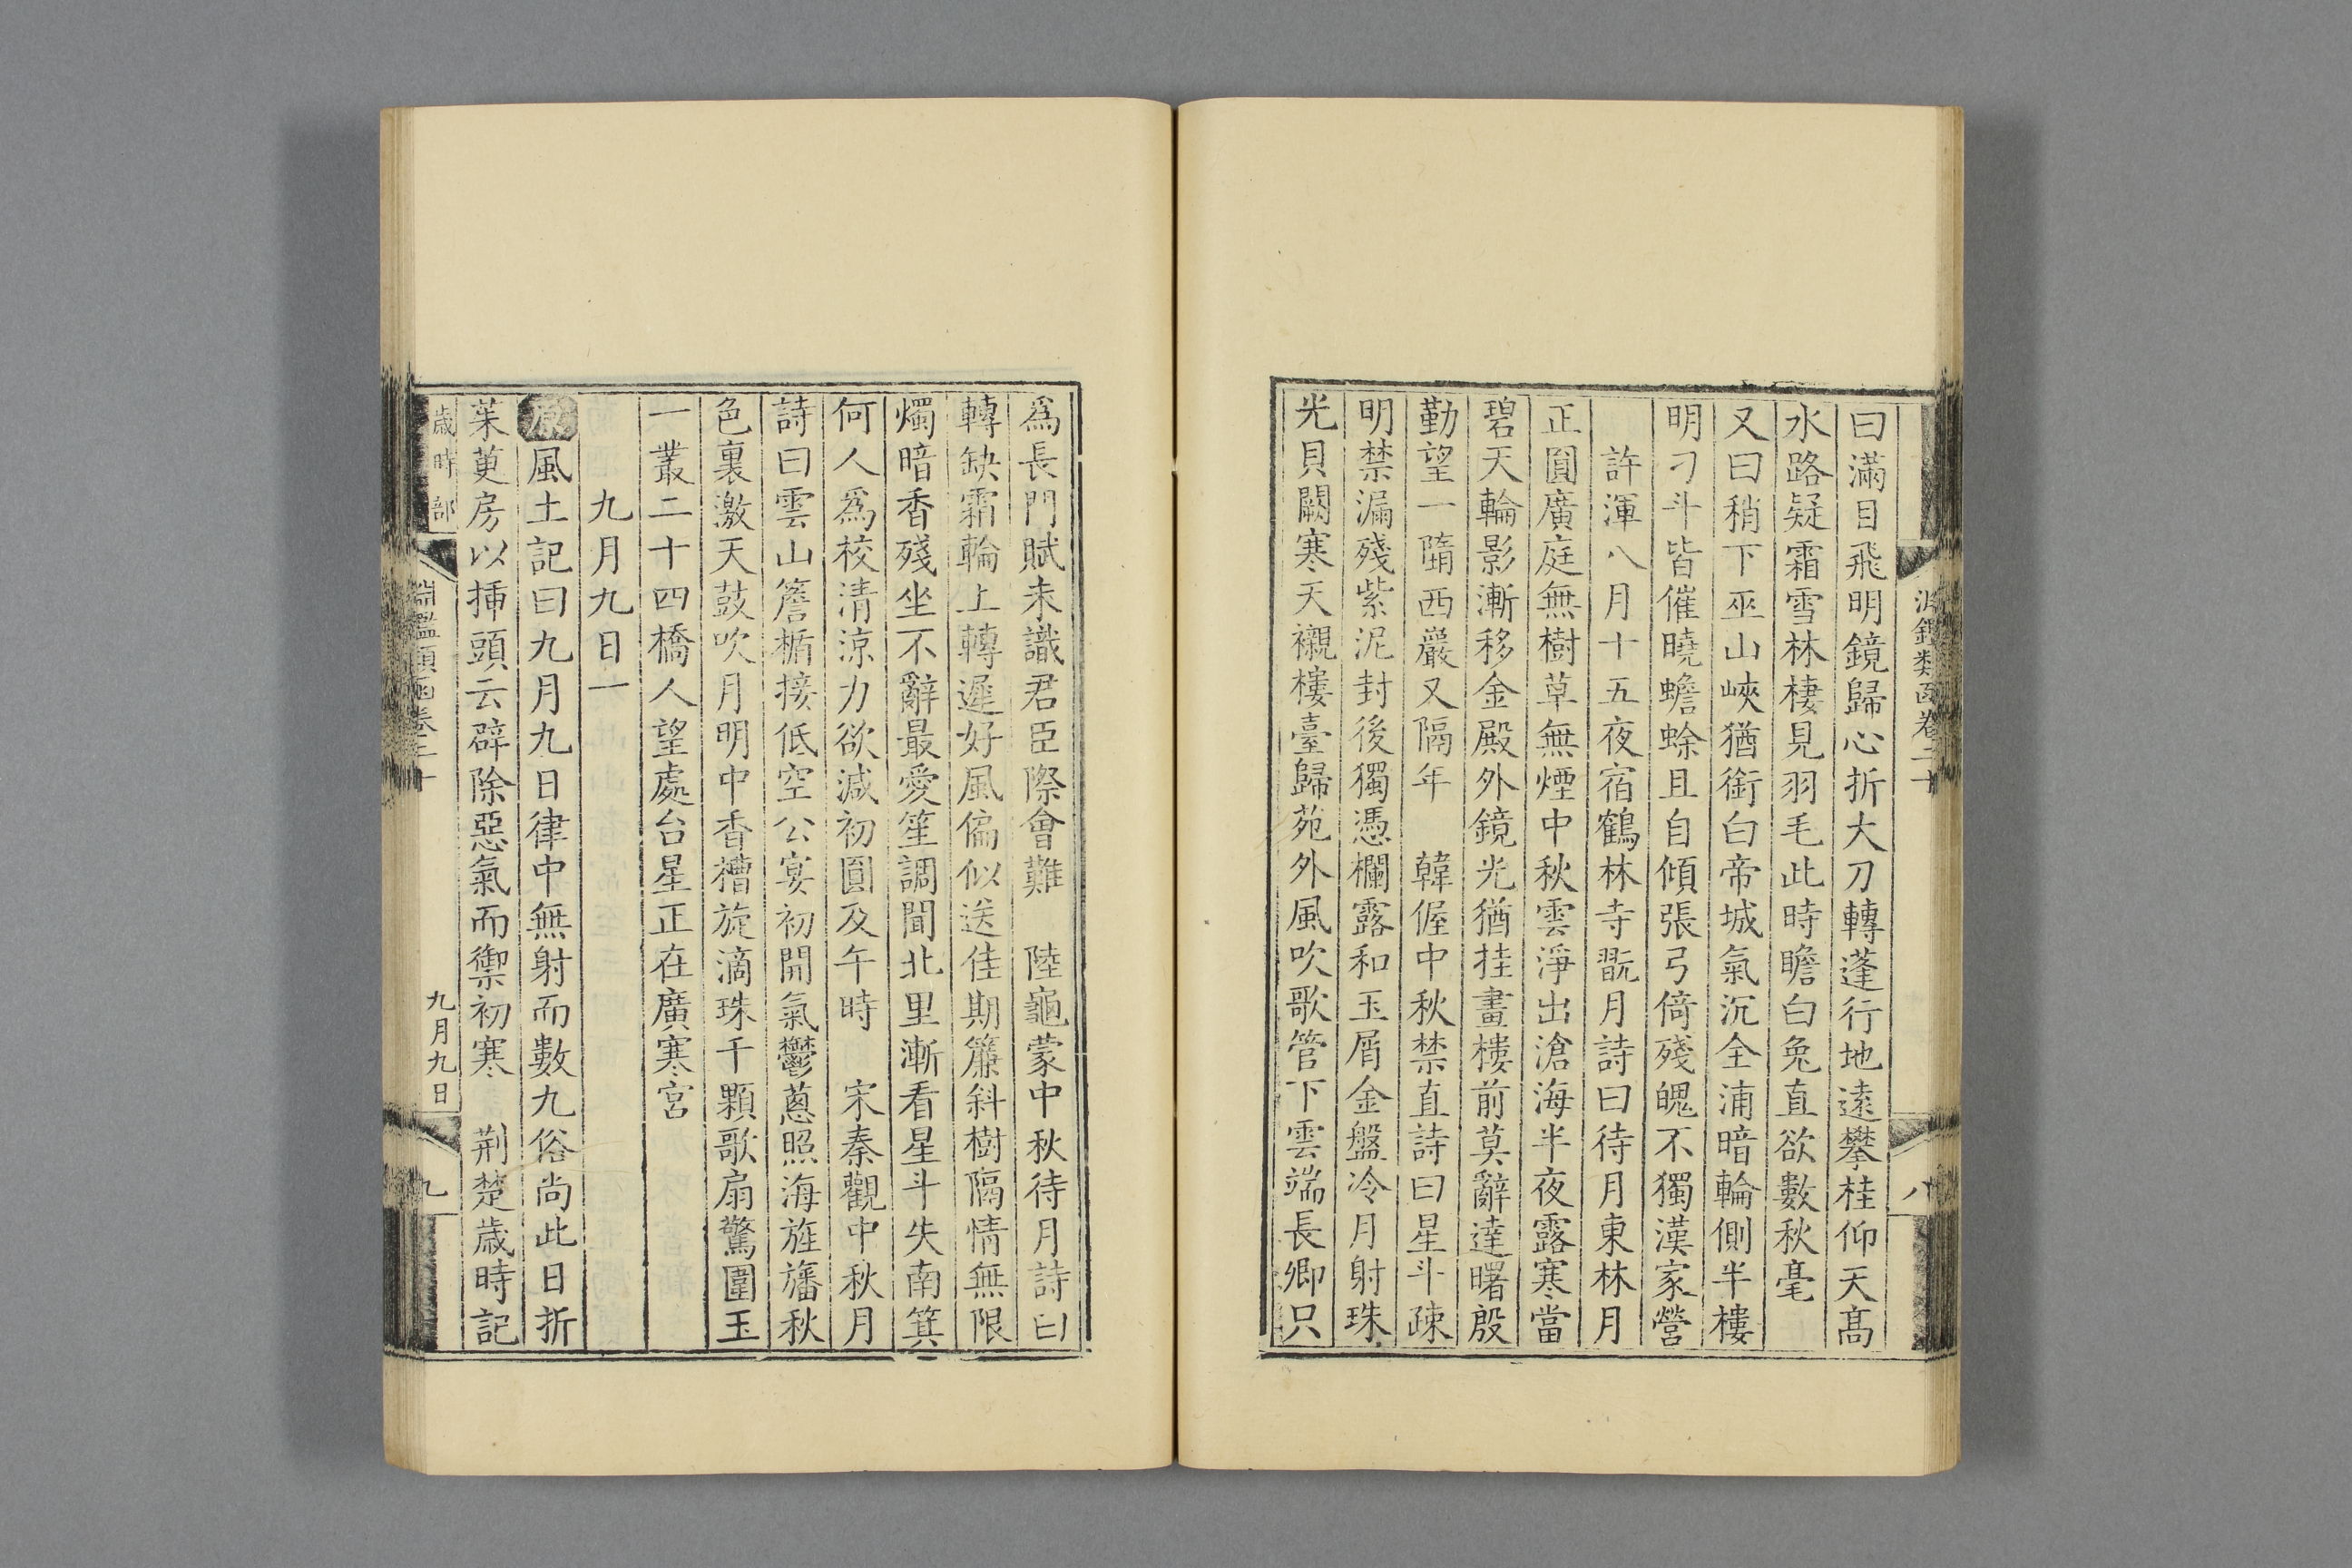 淵鑑類函卷二十
八
曰滿目飛明鏡歸心折大刀轉蓬行地遠攀桂仰天髙
水路疑霜雪林棲見羽毛此時瞻白兔直欲數秋毫
又曰稍下巫山峽猶銜白帝城氣沉全浦暗輪側半樓
明刁斗皆催曉蟾蜍且自傾張弓倚殘魄不獨漢家營
許渾八月十五夜宿鶴林寺翫月詩曰待月東林月
正圓廣庭無樹草無煙中秋雲淨出滄海半夜露寒當
碧天輪影漸移金殿外鏡光猶挂畫樓前莫辭達曙殷
勤望一隋西巖又隔年　韓偓中秋禁直詩曰星斗疎
明禁漏殘紫泥封後獨憑欄露和玉屑金盤冷月射珠
光貝闕寒天襯樓臺歸苑外風吹歌管下雲端長卿只
爲長門賦未識君臣際會難　陸龜蒙中秋待月詩曰
轉缺霜輪上轉遲好風偏似送佳期簾斜樹隔情無限
燭暗香殘坐不辭最愛笙調聞北里漸看星斗失南箕
何人爲校清涼力欲減初圓及午時　宋秦觀中秋月
詩曰雲山簷楯接低空公宴初開氣鬱蔥照海旌旛秋
色裏激天鼓吹月明中香槽旋滴珠千顆歌扇驚圍玉
一叢二十四橋人望處台星正在廣寒宮
九月九日一
風土記曰九月九日律中無射而數九俗尚此日折
茱萸房以揷頭云辟除惡氣而禦初寒　荆楚歲時記
歲時部
淵鑑類函卷二十
九月九日
九